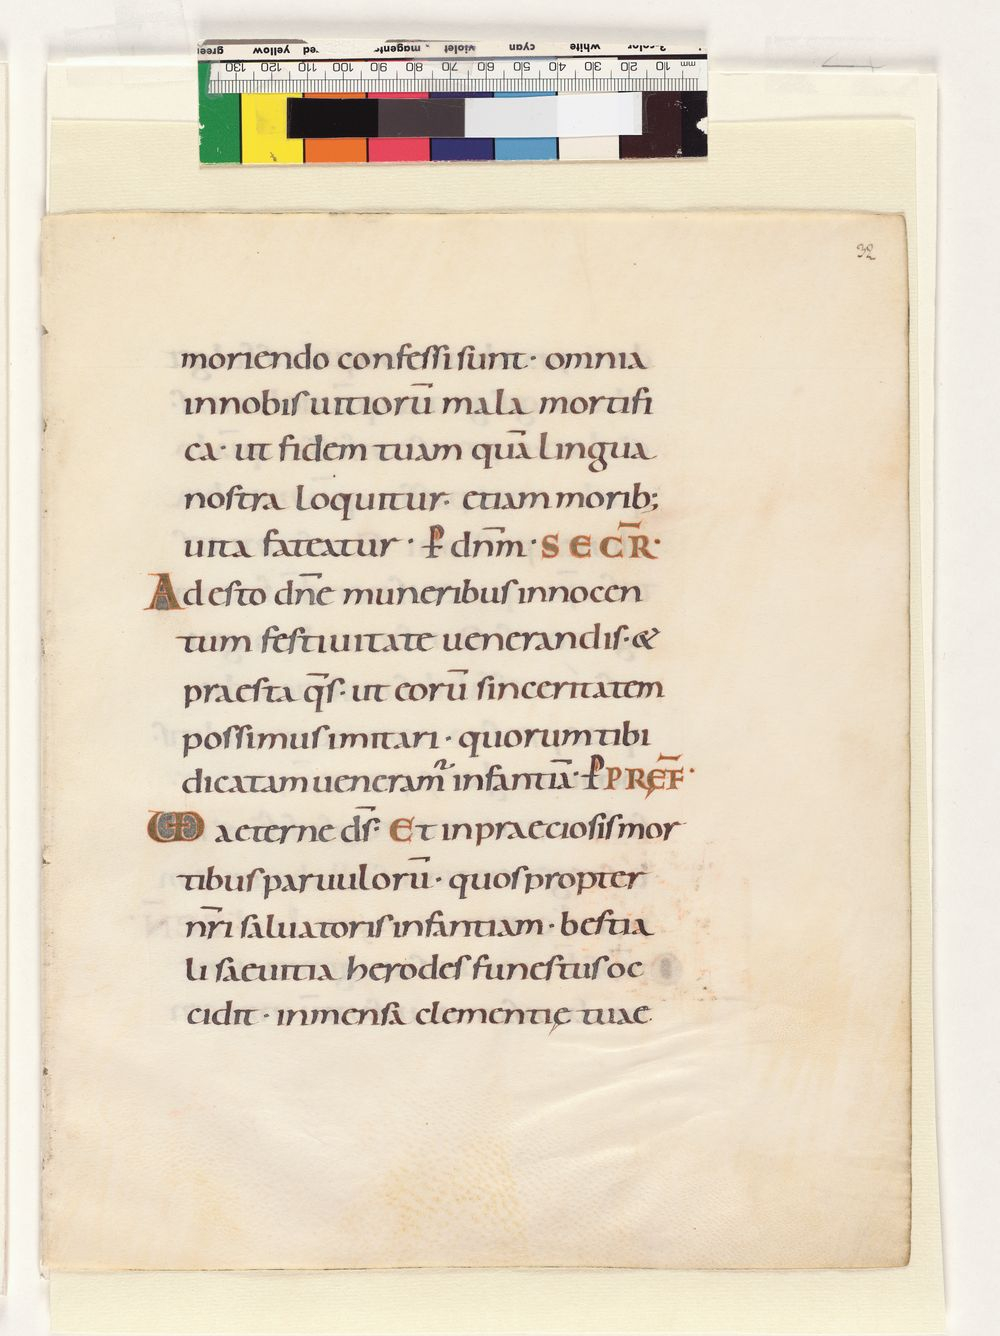 green yellow red magenta violet cyan white 3-color
130 120 110 100 90 80 70 60 50 40 30 20 10 mm
32
moriendo confessi sunt· omnia
innobis uitiorū mala mortifi
ca· ut fidem tuam quā lingua
nostra loquitur· etiam morib;
uita fateatur· ꝑ dnm̄· SECR̄·
Adesto dn̄e muneribus innocen
tum festiuitate uenerandis· &
praesta q̄s· ut eorū sinceritatem
possimus imitari· quorum tibi
dicatam ueneramᷣ infantiā· ꝑ PRĘF̄·
VD aeterne ds̄· Et inpraeciosis mor
tibus paruulorū· quos propter
nr̄i saluatoris infantiam· bestia
li saeuitia herodes funestus oc
cidit· inmensa clementię tuae